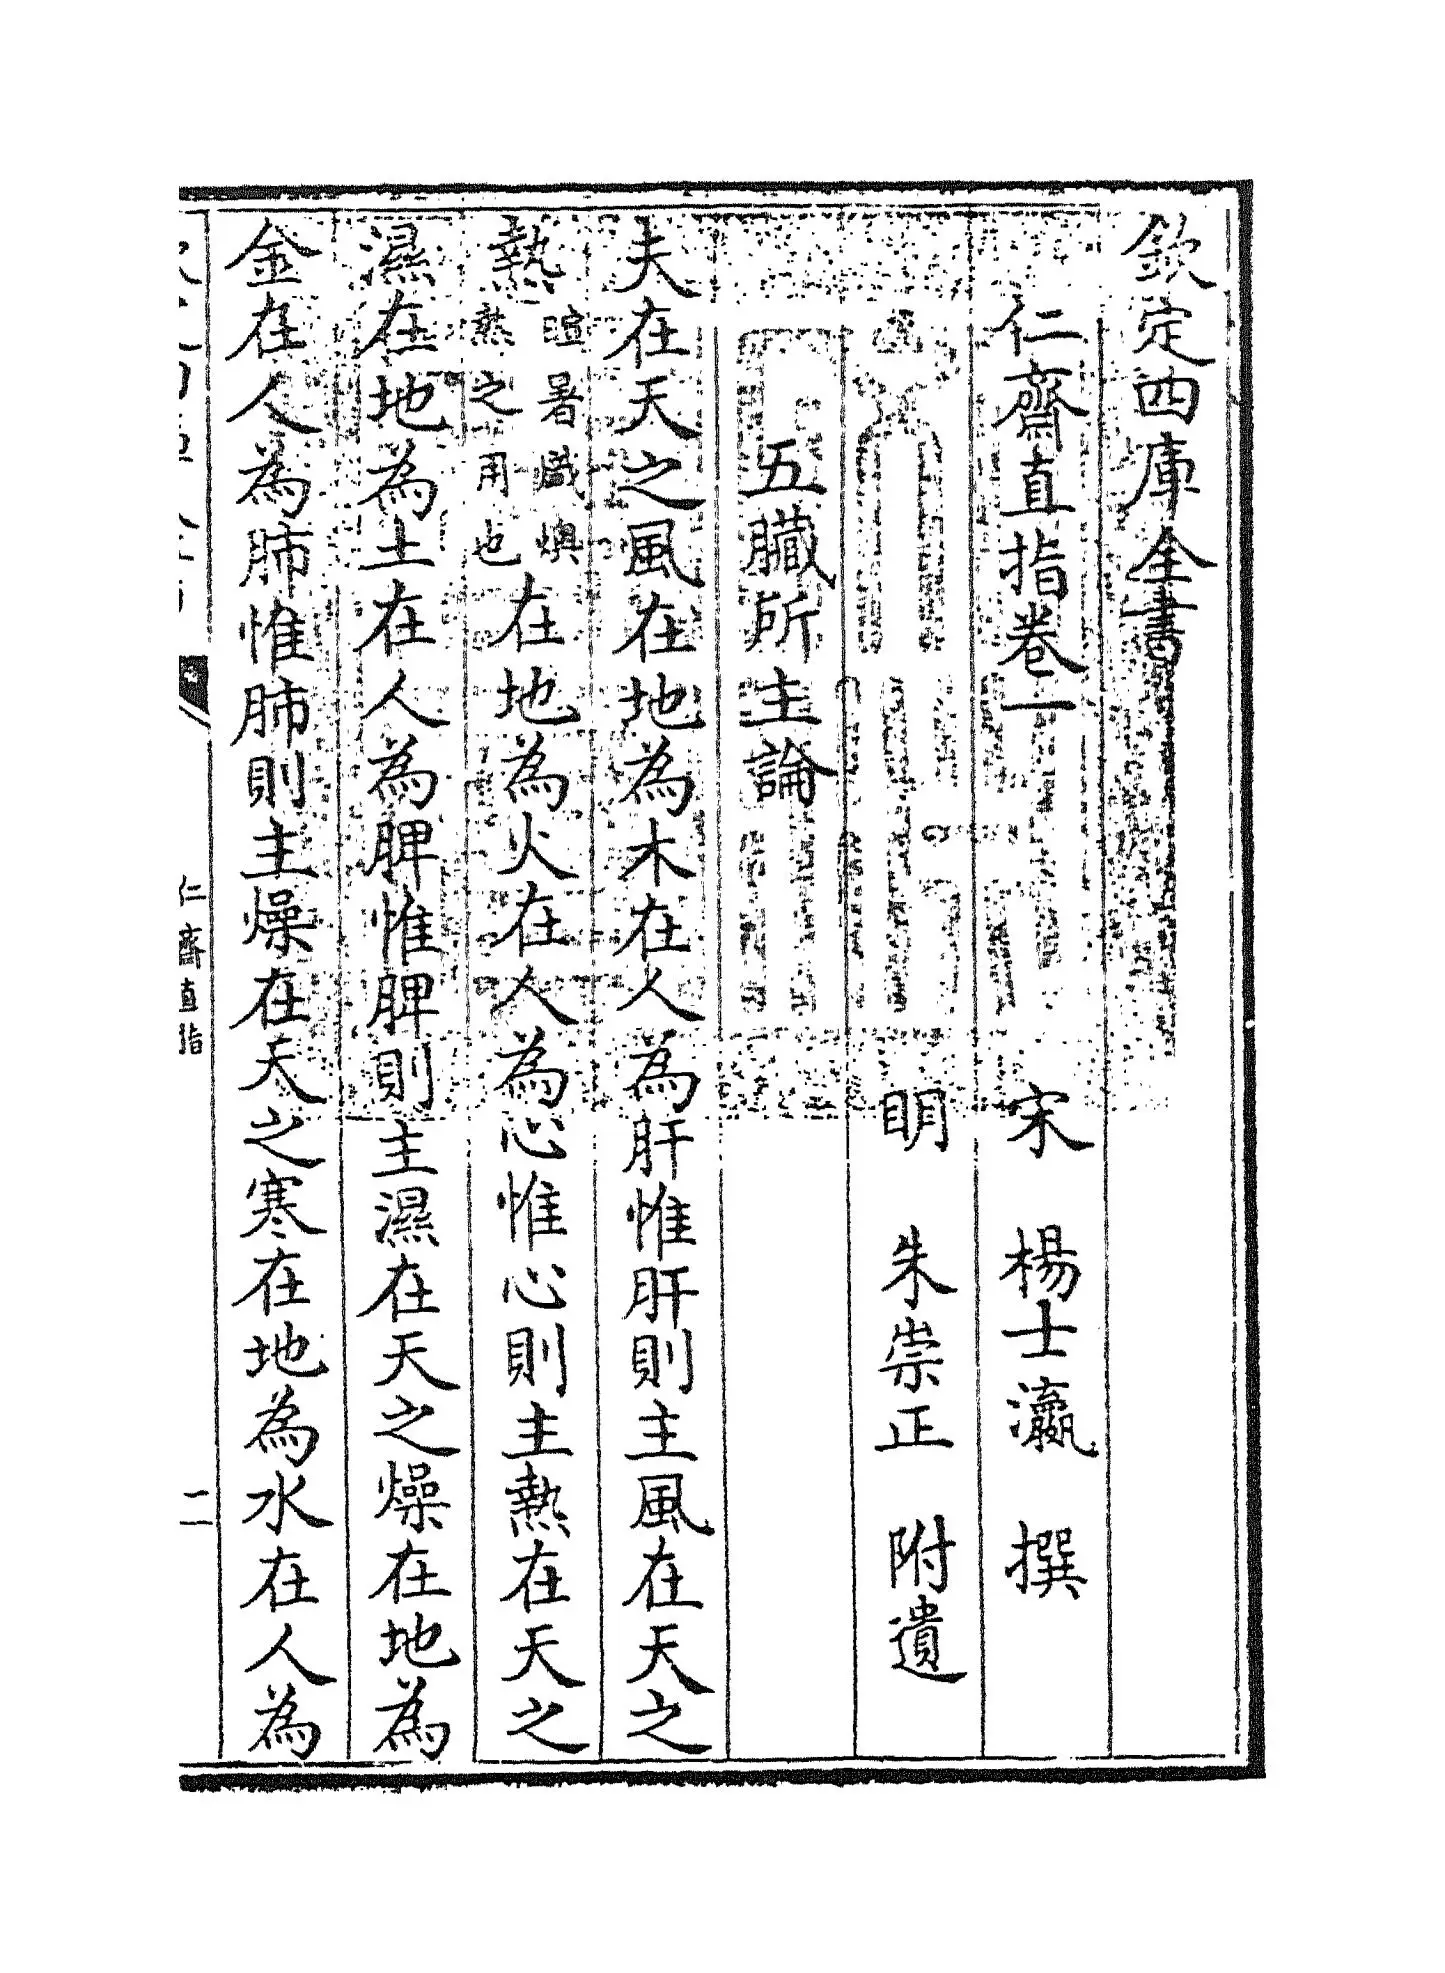 欽定四庫全書
仁齋直指卷一
宋 楊士瀛 撰
明 朱崇正 附遺
五臟所主論
夫在天之風在地為木在人為肝惟肝則主風在天之
熱暄暑熾燠熱之用也在地為火在人為心惟心則主熱在天之
濕在地為土在人為脾惟脾則主濕在天之燥在地為
金在人為肺惟肺則主燥在天之寒在地為水在人為
仁齋直指
二